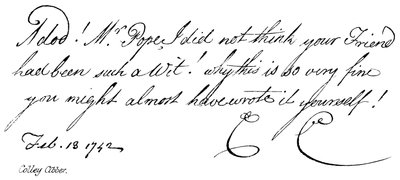 Adod! Mr. Pope, I did not think your Friend
had been such a Wit! why this is so very fine
you might almost have wrote it yourself!
C C
Feb. 18 1742
Colley Cibber.